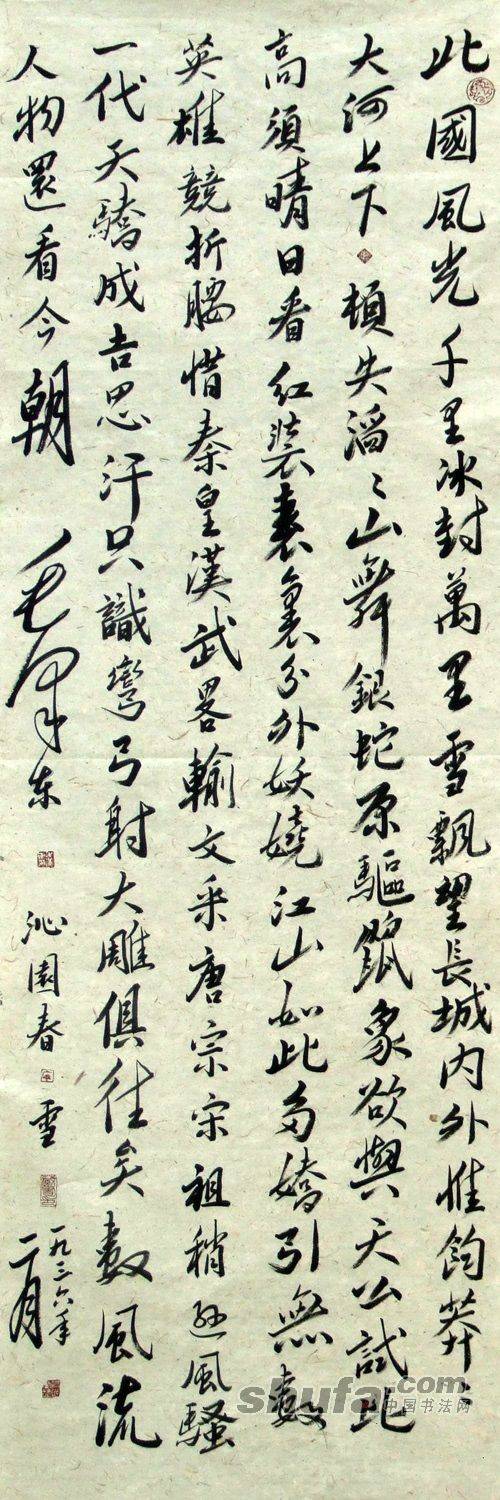 北國風光千里冰封萬里雪飄望長城內外惟餘莽〻
大河上下頓失滔〻山舞銀蛇原驅臘象欲與天公試比
高須晴日看紅裝素裹分外妖嬈江山如此多嬌引無數
英雄競折腰惜秦皇漢武畧輸文采唐宗宋祖稍遜風騷
一代天驕成吉思汗只識彎弓射大雕俱往矣數風流
人物還看今朝 毛澤東 沁園春 雪
一九三六年
二月
shufa.com
中国书法网